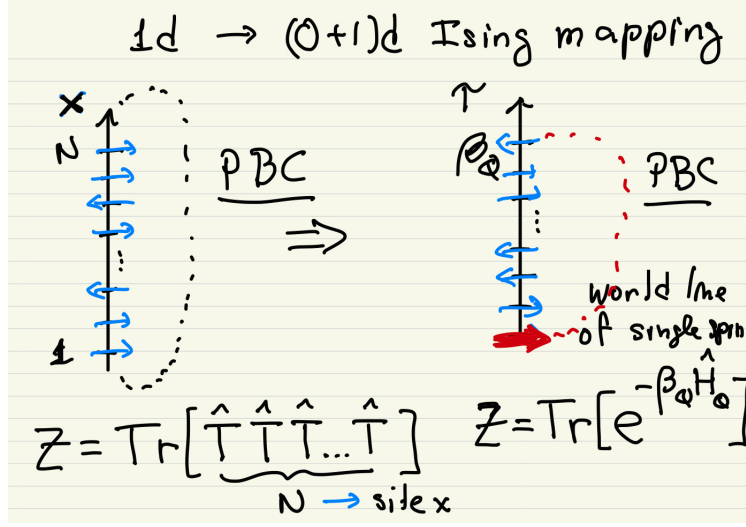 1d → (0+1)d Ising mapping
x
N
PBC
⇒
1
τ
β_Q
PBC
world line
of single spin
Z = Tr[T̂ T̂ T̂ ... T̂]
N → site x
Z = Tr[e^{-β_Q Ĥ_Q}]